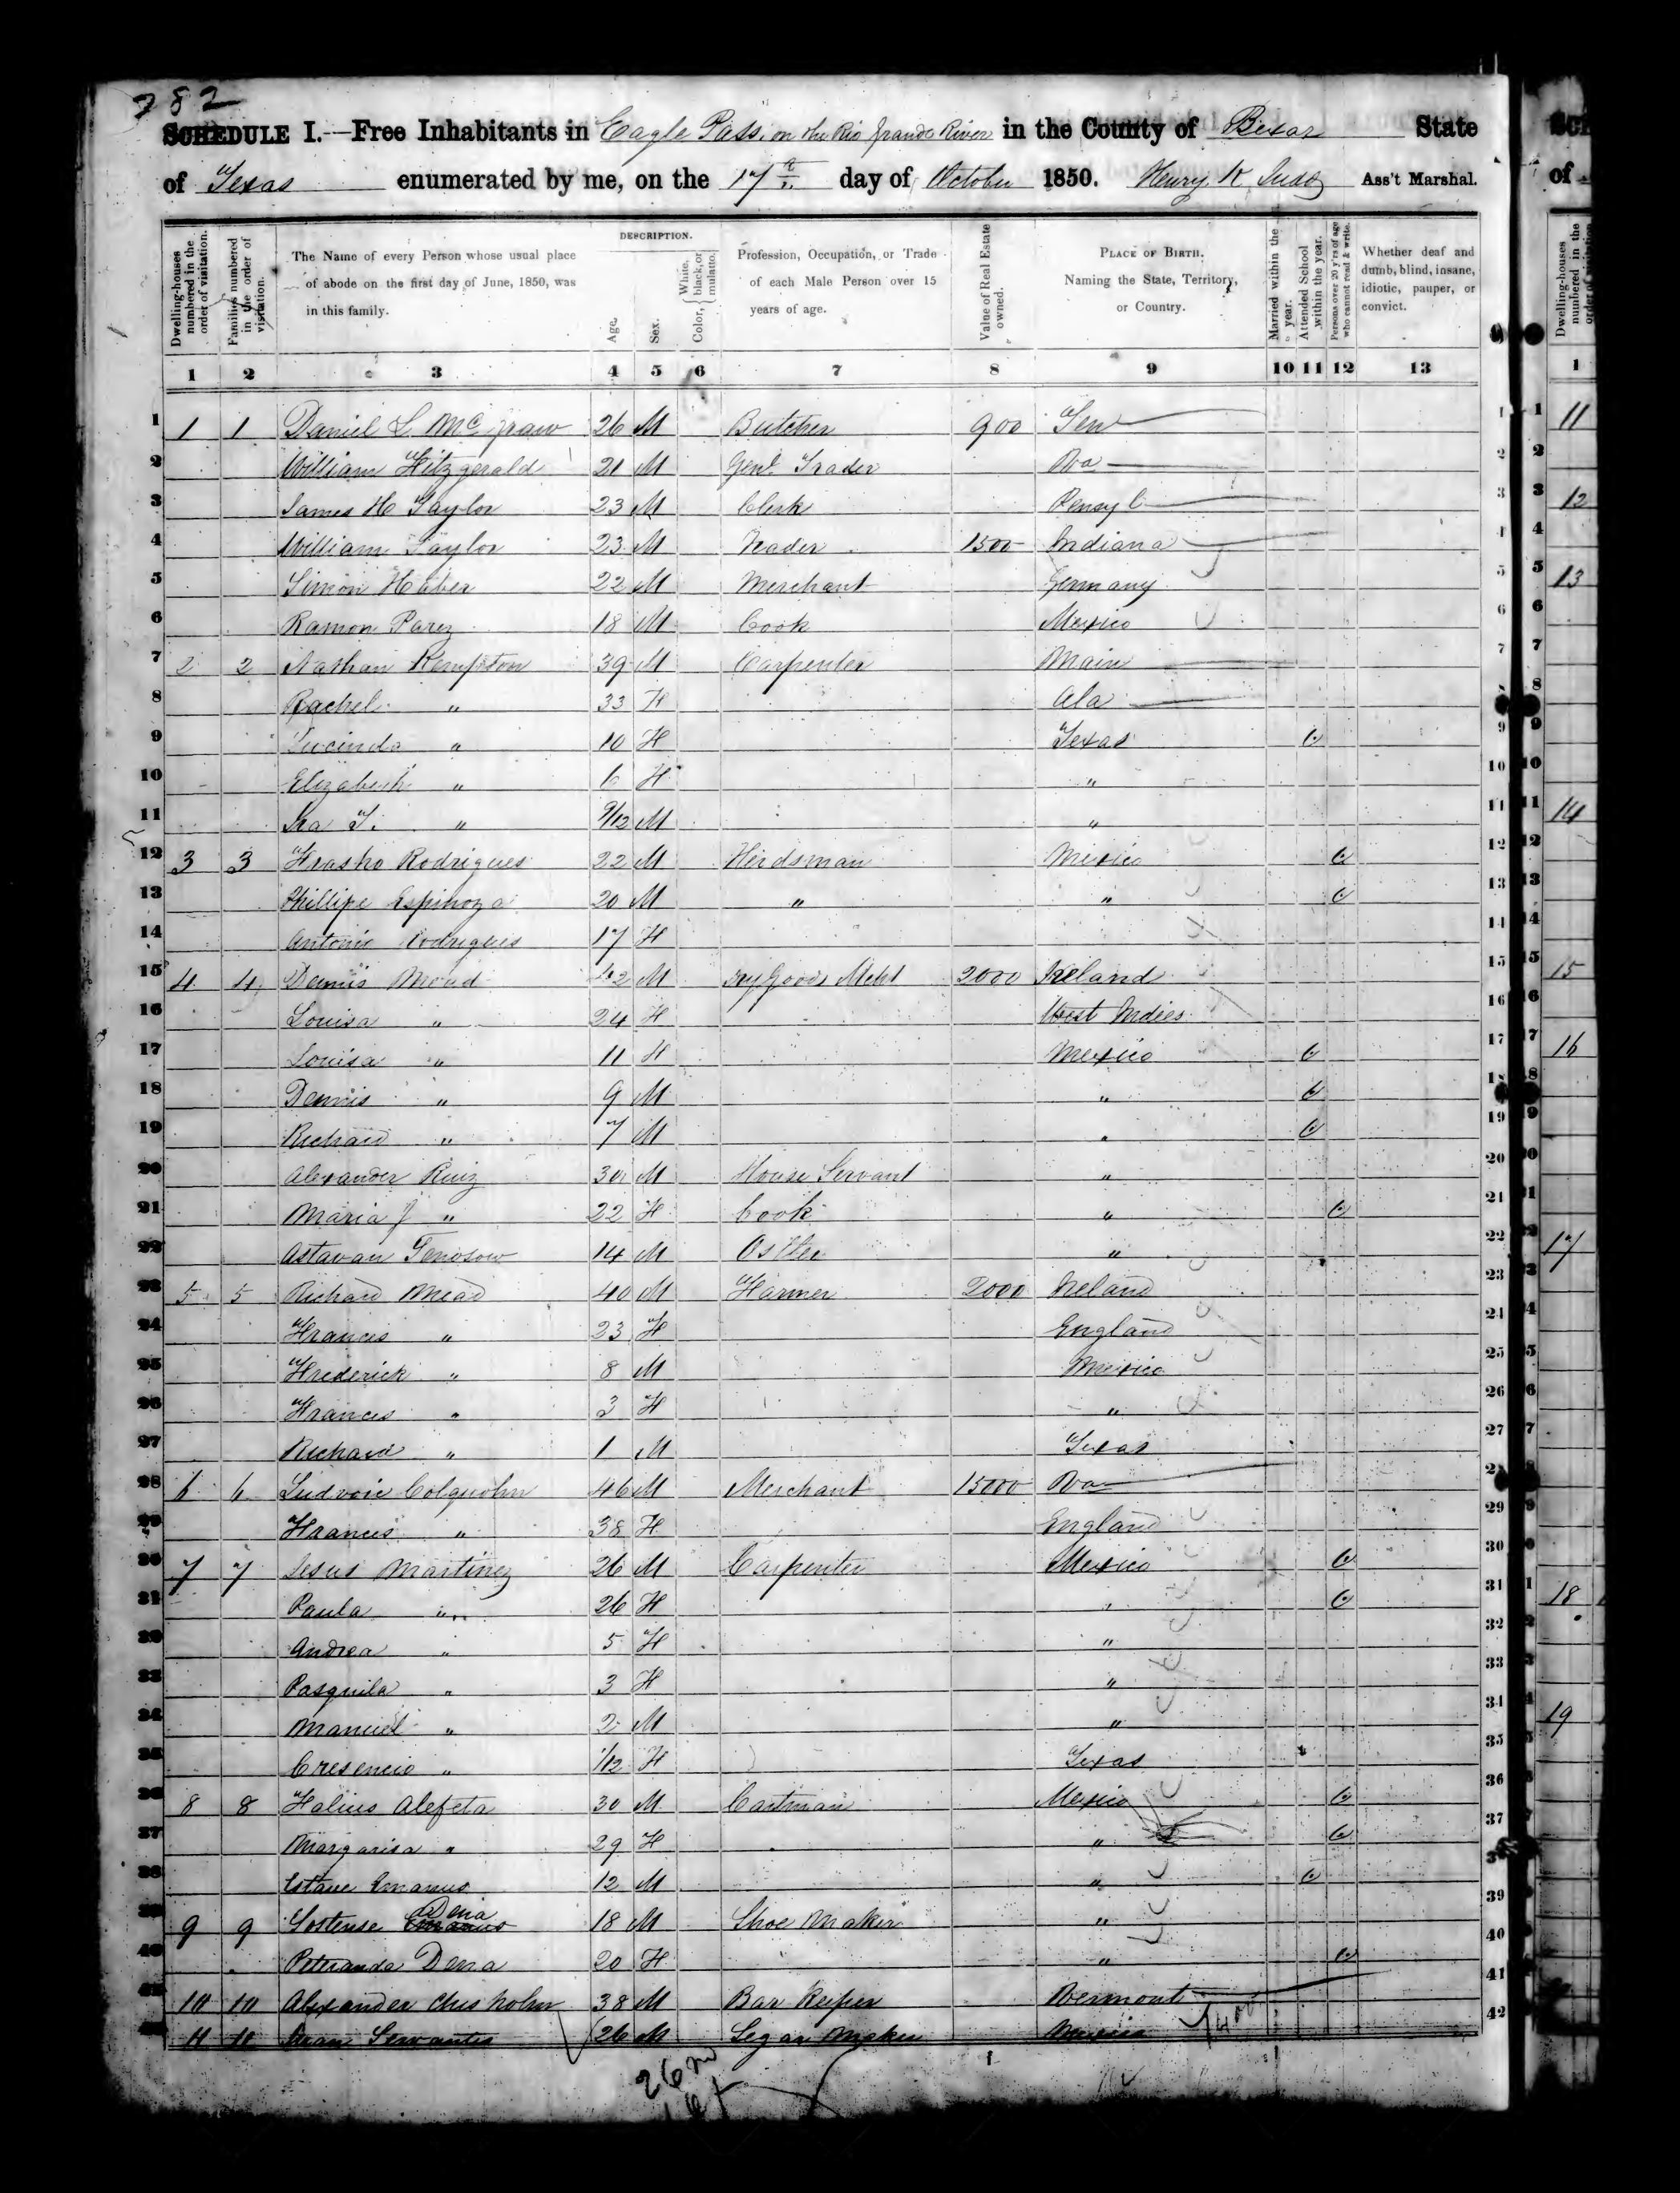 782
SCHEDULE I.—Free Inhabitants in Eagle Pass, on the Rio Grande River in the County of Bexar State
of Texas enumerated by me, on the 17th day of October 1850. Henry K Ass't Marshal.
Dwelling-houses numbered in the order of visitation.
Families numbered in the order of visitation.
The Name of every Person whose usual place of abode on the first day of June, 1850, was in this family.
DESCRIPTION.
Age.
Sex.
Color, { White, black, or mulatto.
Profession, Occupation, or Trade of each Male Person over 15 years of age.
Value of Real Estate owned.
PLACE OF BIRTH. Naming the State, Territory, or Country.
Married within the year.
Attended School within the year.
Persons over 20 y'rs of age who cannot read & write.
Whether deaf and dumb, blind, insane, idiotic, pauper, or convict.
1 2 3 4 5 6 7 8 9 10 11 12 13
1 1 1 Daniel L. McGraw 26 M Butcher 900 Ten 1
2 William Fitzgerald 21 M Genl. Trader Va 2
3 James H Taylor 23 M Clerk Pensyl 3
4 William Taylor 23 M Trader 1500 Indiana 4
5 Simon Huber 22 M Merchant Germany 5
6 Ramon Parez 18 M Cook Mexico 6
7 2 2 Nathan Kempton 39 M Carpenter Main 7
8 Rachel " 33 F Ala 8
9 Lucinda " 10 F Texas 9
10 Elizabeth " 6 F " 10
11 Ira T. " 9/12 M " 11
12 3 3 Rodrigues 22 M Herdsman Mexico 12
13 Phillipe Espinoza 20 M " " 13
14 Antonio Rodrigues 17 F 14
15 4 4 Dennis Mead 42 M Dry Goods Mcht 2000 Ireland 15
16 Louisa " 24 F West Indies 16
17 Louisa " 11 F Mexico 17
18 Dennis " 9 M " 18
19 Richard " 7 M " 19
20 Alexander Ruiz 30 M House Servant " 20
21 Maria J " 22 F Cook " 21
22 Astavan 14 M Ostler " 22
23 5 5 Richard Mead 40 M Farmer 2000 Ireland 23
24 Frances " 23 F England 24
25 Frederick " 8 M Mexico 25
26 Frances " 3 F " 26
27 Richard " 1 M Texas 27
28 6 6 Ludovic Colquohn 46 M Merchant 15000 Va 28
29 Frances " 38 F England 29
30 7 7 Jesus Martinez 26 M Carpenter Mexico 30
31 Paula " 26 F " 31
32 Andrea " 5 F " 32
33 Pasquila " 3 F " 33
34 Manuel " 2 M " 34
35 Cresencio " 1/12 F Texas 35
36 8 8 Falius Alefeta 30 M Cartman Mexico 36
37 Margarisa " 29 F " 37
38 Emanus 12 M "
39 9 9 Sostense Dena 18 M Shoe Maker " 39
40 Peteranda Dena 20 F " 40
41 10 10 Alexander Chisholm 38 M Bar Keeper Vermont 41
42 11 11 Juan Servantes 26 M Segar Maker Mexico 42
26 m
11
12
13
14
15
16
17
18
19